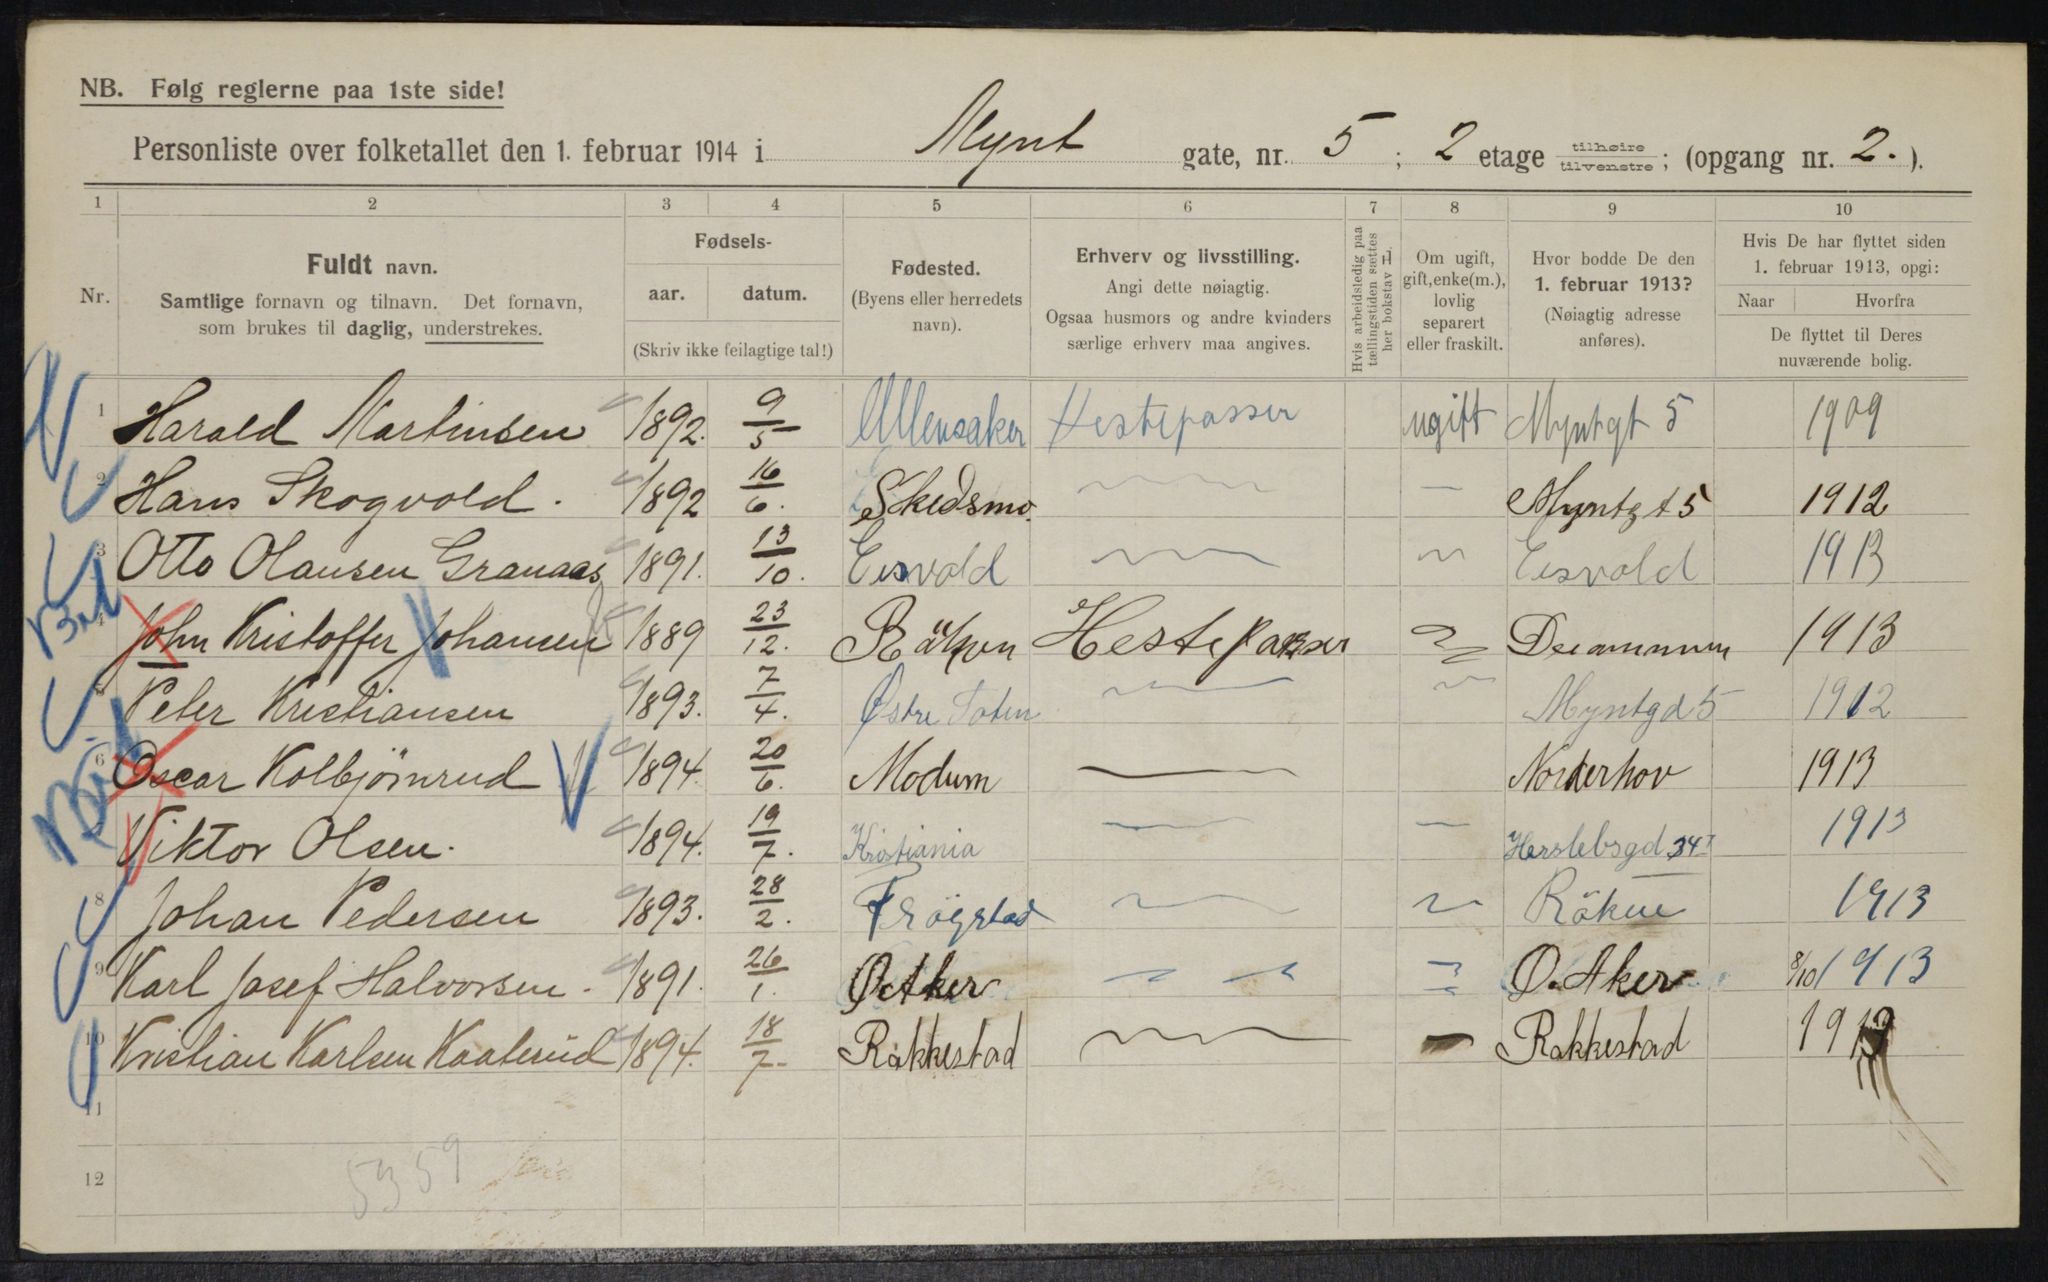 NB. Følg reglerne paa 1ste side!
Personliste over folketallet den 1. februar 1914 i Mynt gate, nr. 5 ; 2 etage tilhøire tilvenstre ; (opgang nr. 2. ).
1 2 3 4 5 6 7 8 9 10
Nr.
Fuldt navn.
Samtlige fornavn og tilnavn. Det fornavn,
som brukes til daglig, understrekes.
Fødsels-
aar. datum.
(Skriv ikke feilagtige tal!)
Fødested.
(Byens eller herredets
navn).
Erhverv og livsstilling.
Angi dette nøiagtig.
Ogsaa husmors og andre kvinders
særlige erhverv maa angives.
Hvis arbeidsledig paa
tællingstiden sættes
her bokstav L.
Om ugift,
gift, enke(m.),
lovlig
separert
eller fraskilt.
Hvor bodde De den
1. februar 1913?
(Nøiagtig adresse
anføres).
Hvis De har flyttet siden
1. februar 1913, opgi:
Naar Hvorfra
De flyttet til Deres
nuværende bolig.
1 Harald Martinsen 1892. 9/5 Ullensaker Hestepasser ugift Myntgt 5 1909
2 Hans Skogvold. 1892 16/6. Skedsmo. — Myntgt 5 1912
3 Otto Olausen Granaas 1891. 13/10. Eisvold Eisvold 1913
4 John Kristoffer Johansen 1889 23/12. Hestepasser 1913
5 Peter Kristiansen 1893. 7/4. Østre Toten Myntgd 5 1912
6 Oscar Kolbjörnrud 1894. 20/6. Modum — Norderhov 1913
7 Viktor Olsen. 1894. 19/7. Kristiania — Herslebsgd 34 I 1913
8 Johan Pedersen 1893. 28/2. Trögstad Röken 1913
9 Karl Josef Halvorsen. 1891. 26/1. Ø Aker Ø. Aker 8/10 1913
10 Kristian Karlsen Kaaterud 1894. 18/7. Rakkestad — Rakkestad 1913
11
12
5359